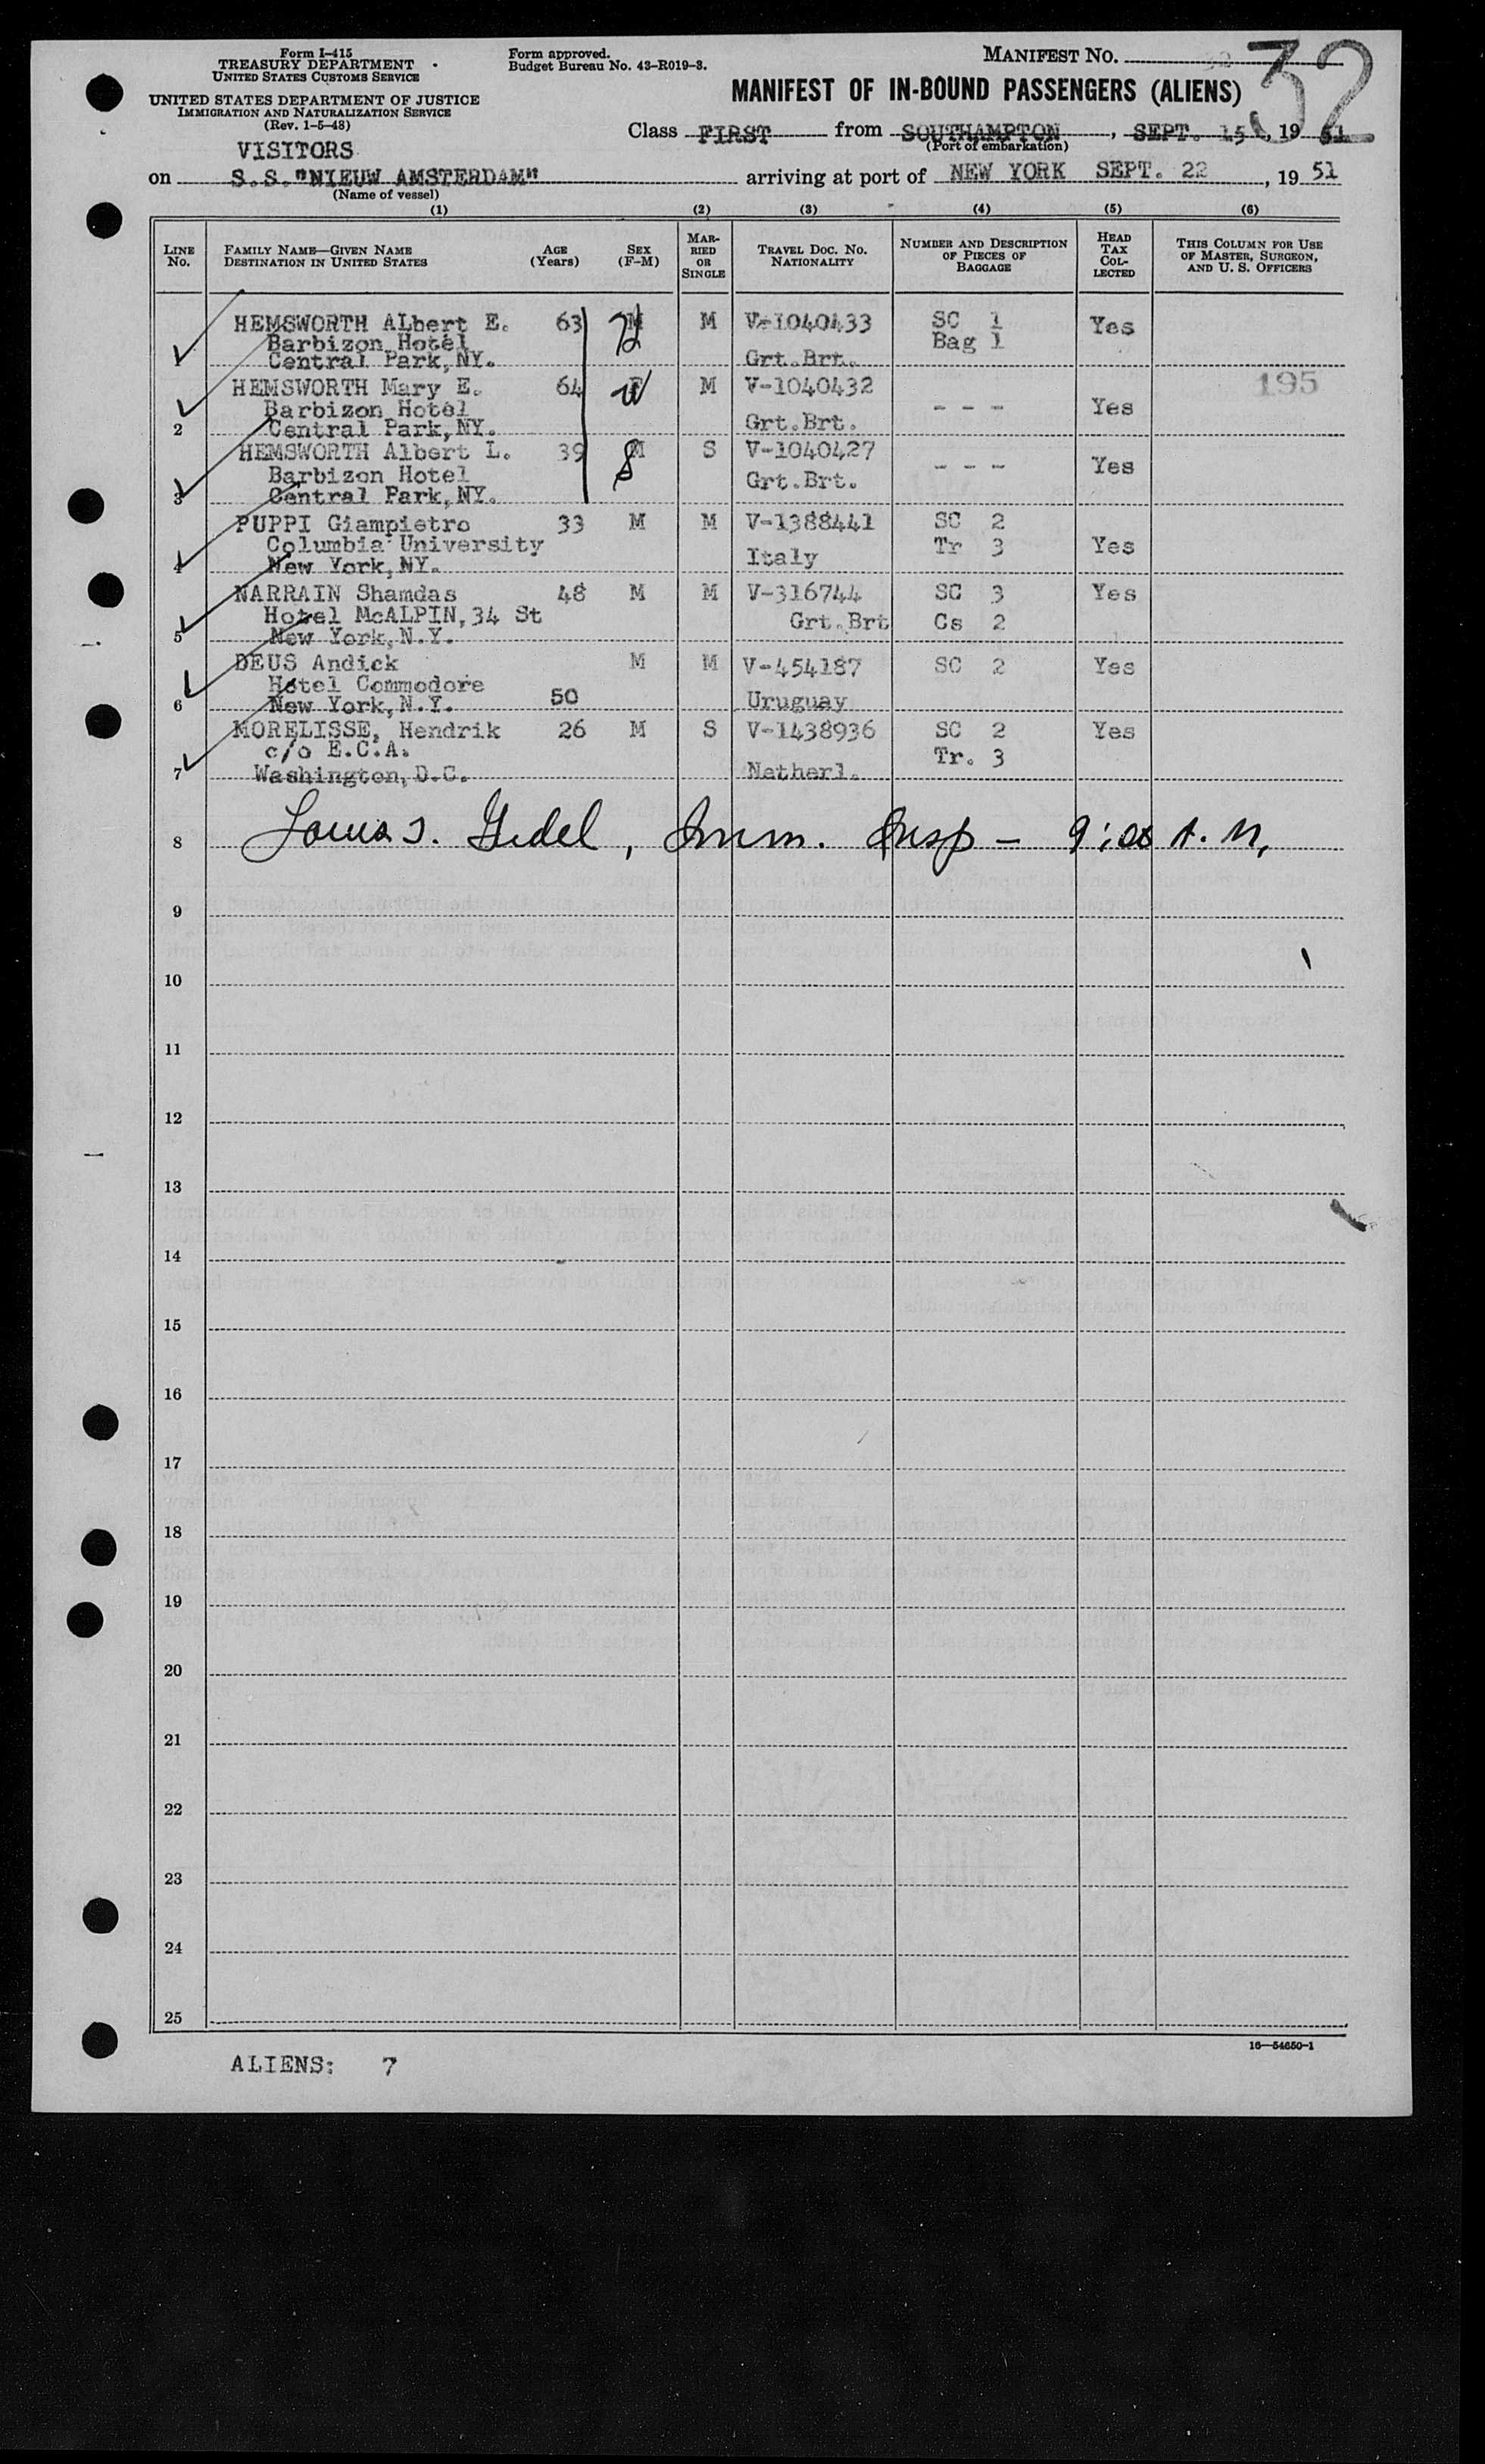 Form I-415
TREASURY DEPARTMENT
UNITED STATES CUSTOMS SERVICE
UNITED STATES DEPARTMENT OF JUSTICE
IMMIGRATION AND NATURALIZATION SERVICE
(Rev. 1-5-48)
Form approved.
Budget Bureau No. 43-R019-3.
MANIFEST NO. 32
MANIFEST OF IN-BOUND PASSENGERS (ALIENS)
Class FIRST from SOUTHAMPTON, SEPT. 15, 19 51
(Port of embarkation)
VISITORS
on S.S."NIEUW AMSTERDAM" arriving at port of NEW YORK SEPT. 22, 19 51
(Name of vessel)
(1) (2) (3) (4) (5) (6)
LINE No.
FAMILY NAME—GIVEN NAME
DESTINATION IN UNITED STATES
AGE (Years)
SEX (F-M)
MARRIED OR SINGLE
TRAVEL DOC. NO. NATIONALITY
NUMBER AND DESCRIPTION OF PIECES OF BAGGAGE
HEAD TAX COLLECTED
THIS COLUMN FOR USE OF MASTER, SURGEON, AND U. S. OFFICERS
HEMSWORTH ALbert E. 63 M M V-1040433 SC 1 Yes
Barbizon Hotel Bag 1
1 Central Park,NY. Grt.Brt.
HEMSWORTH Mary E. 64 W M V-1040432 195
Barbizon Hotel - - - Yes
2 Central Park,NY. Grt.Brt.
HEMSWORTH Albert L. 39 M S V-1040427
Barbizon Hotel - - - Yes
3 Central Park,NY. Grt.Brt.
PUPPI Giampietro 33 M M V-1388441 SC 2
Columbia University Tr 3 Yes
4 New York,NY. Italy
NARRAIN Shamdas 48 M M V-316744 SC 3 Yes
Hotel McALPIN,34 St Grt.Brt Cs 2
5 New York,N.Y.
DEUS Andick M M V-454187 SC 2 Yes
Hotel Commodore
6 New York,N.Y. 50 Uruguay
MORELISSE, Hendrik 26 M S V-1438936 SC 2 Yes
c/o E.C.A. Tr. 3
7 Washington,D.C. Netherl.
8 Louis J. Gidel, Imm. Insp – 9:00 A.M,
9
10
11
12
13
14
15
16
17
18
19
20
21
22
23
24
25
16—54650-1
ALIENS: 7